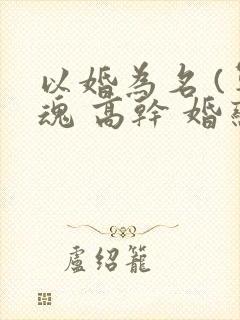 以婚為名(
魂 高幹 婚
盧紹籠